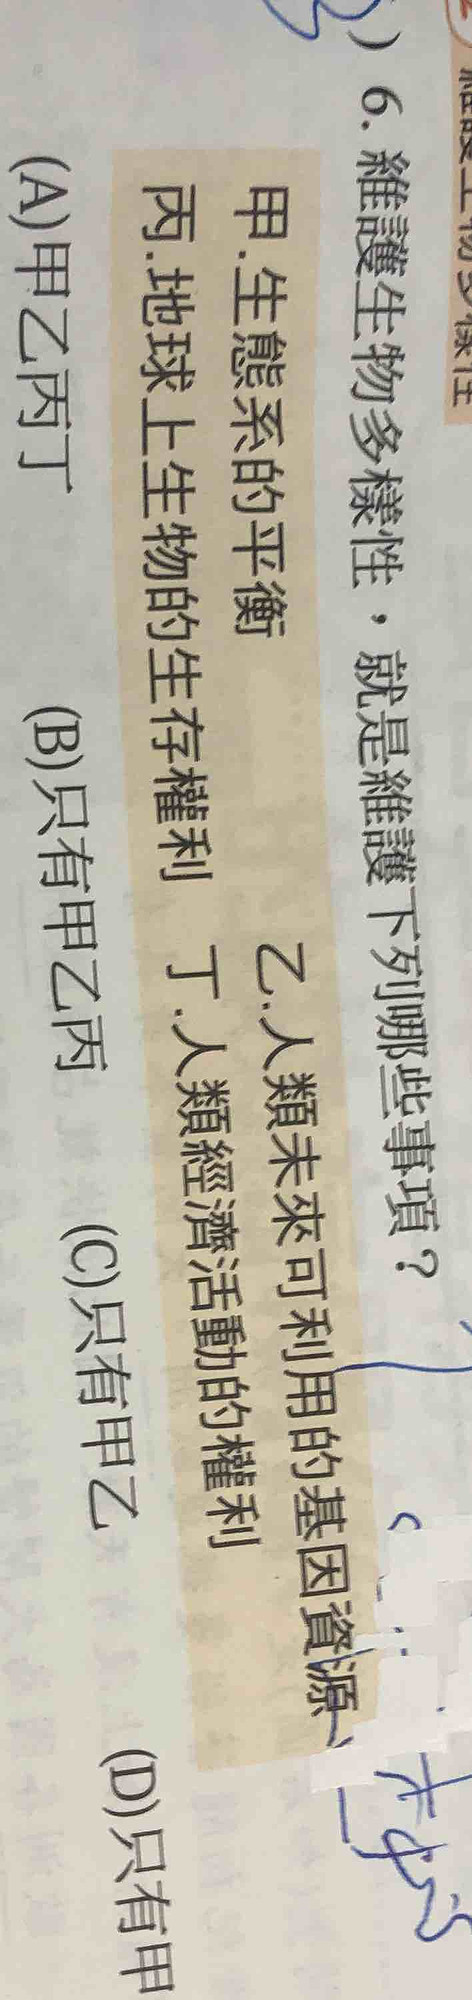 維護生物多樣性
) 6. 維護生物多樣性，就是維護下列哪些事項？
甲.生態系的平衡 乙.人類未來可利用的基因資源
丙.地球上生物的生存權利 丁.人類經濟活動的權利
(A)甲乙丙丁 (B)只有甲乙丙 (C)只有甲乙 (D)只有甲